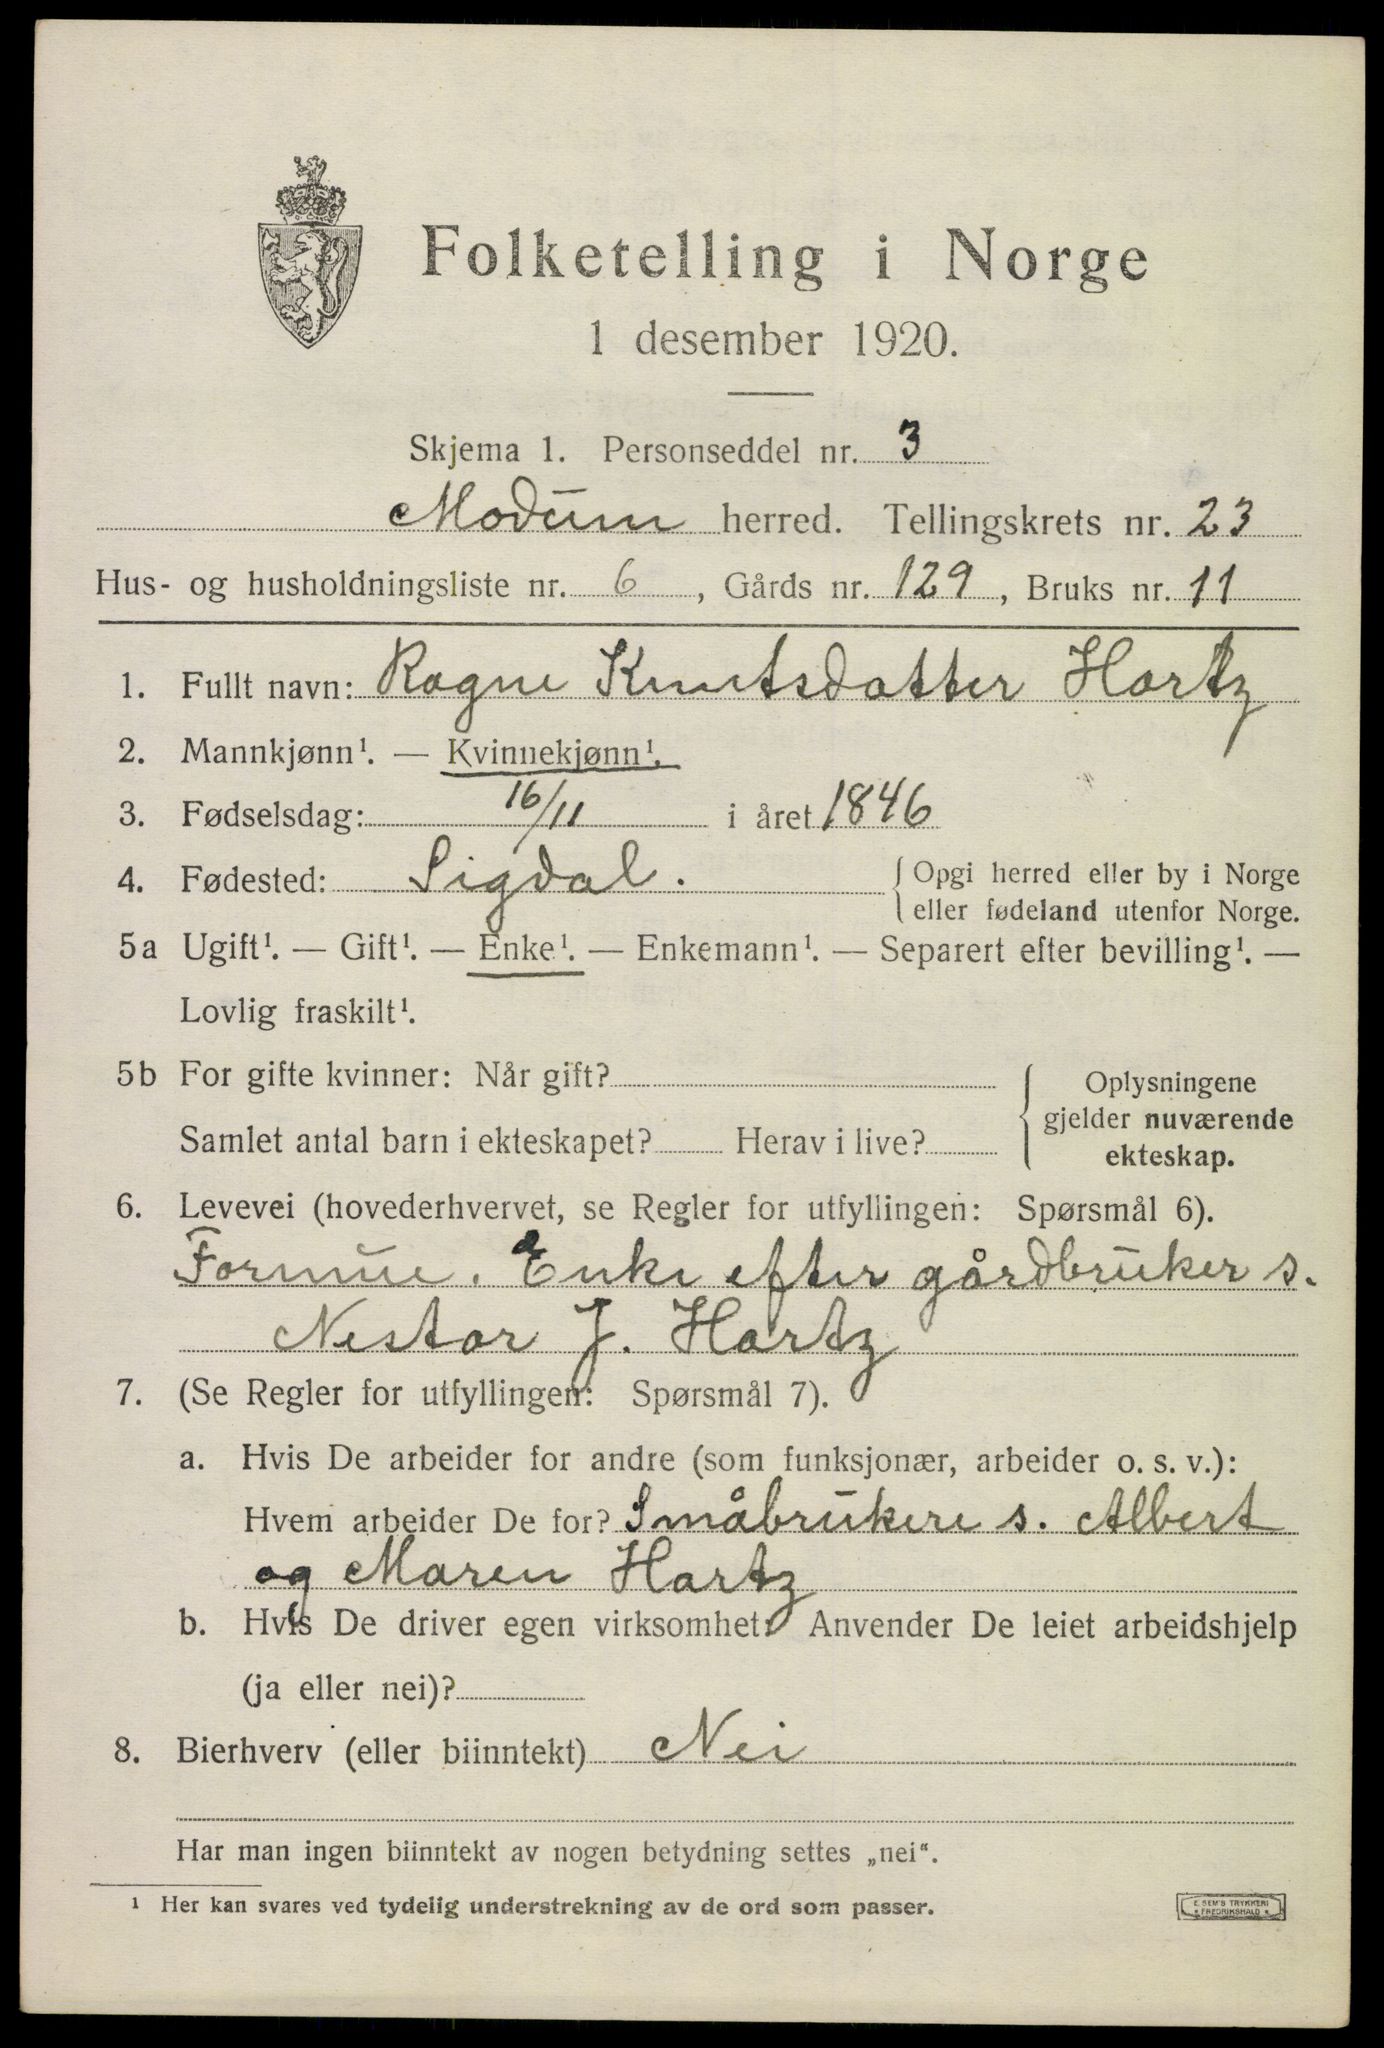 Folketelling i Norge
1 desember 1920.
Skjema 1. Personseddel nr. 3
Modum herred. Tellingskrets nr. 23
Hus- og husholdningsliste nr. 6, Gårds nr. 129, Bruks nr. 11
1. Fullt navn: Ragne Knutsdatter Hartz
2. Mannkjønn¹. — Kvinnekjønn¹.
3. Fødselsdag: 16/11 i året 1846
4. Fødested: Sigdal. { Opgi herred eller by i Norge
eller fødeland utenfor Norge.
5a Ugift¹. — Gift¹. — Enke¹. — Enkemann¹. — Separert efter bevilling¹. —
Lovlig fraskilt¹.
5b For gifte kvinner: Når gift?
Samlet antal barn i ekteskapet? Herav i live?
{ Oplysningene
gjelder nuværende
ekteskap.
6. Levevei (hovederhvervet, se Regler for utfyllingen: Spørsmål 6).
Formue. Enke efter gårdbruker s.
Nestor J. Hartz
7. (Se Regler for utfyllingen: Spørsmål 7).
a. Hvis De arbeider for andre (som funksjonær, arbeider o. s. v.):
Hvem arbeider De for? Småbrukere s. Albert
og Maren Hartz
b. Hvis De driver egen virksomhet: Anvender De leiet arbeidshjelp
(ja eller nei)?
8. Bierhverv (eller biinntekt) Nei
Har man ingen biinntekt av nogen betydning settes „nei“.
¹ Her kan svares ved tydelig understrekning av de ord som passer.
E. SEM'S TRYKKERI
FREDRIKSHALD